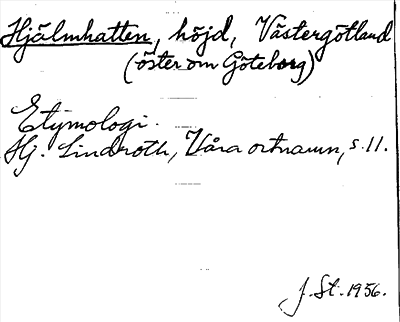 Hjälmhatten, höjd, Västergötland
(öster om Göteborg)
Etymologi.
Hj. Lindroth, Våra ortnamn, s. 11.
J. St. 1956.